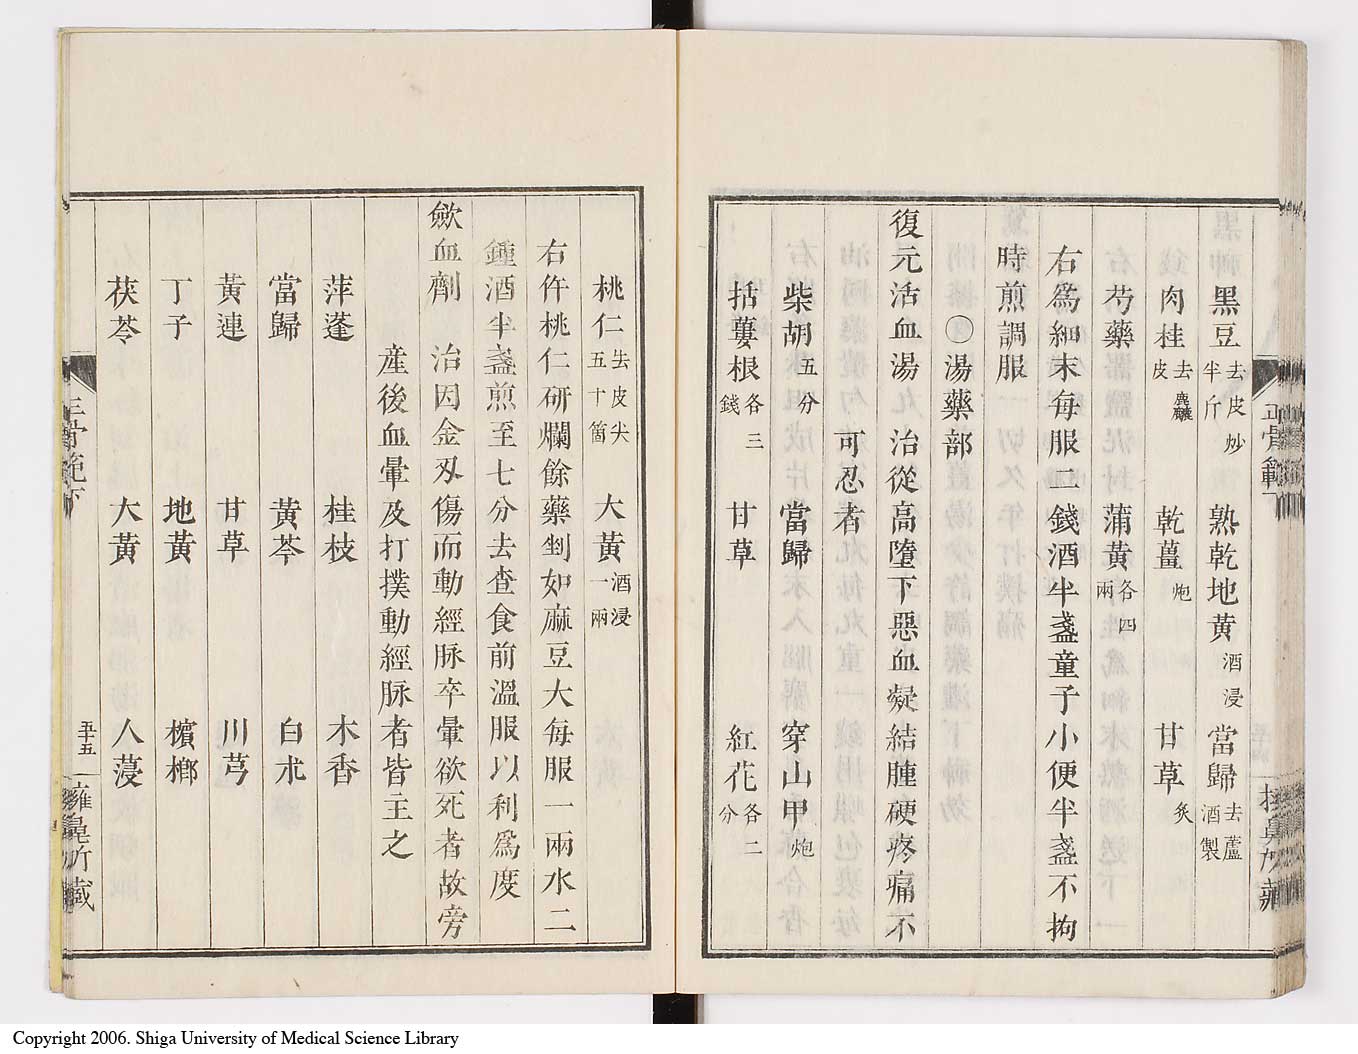 黑豆去皮炒半斤 熟乾地黄酒浸 當歸去蘆酒製
肉桂去麁皮 乾薑炮 甘草炙
芍藥 蒲黄各四兩
右爲細末每服二錢酒半盞童子小便半盞不拘
時煎調服
○湯藥部
復元活血湯 治從高墮下惡血凝結腫硬疼痛不
可忍者
柴胡五分 當歸 穿山甲炮
括蔞根各三錢 甘草 紅花各二分
桃仁去皮尖五十箇 大黄酒浸一兩
右件桃仁研爛餘藥剉如麻豆大每服一兩水二
鍾酒半盞煎至七分去查食前溫服以利爲度
歛血劑 治因金刄傷而動經脉卒暈欲死者故旁
產後血暈及打撲動經脉者皆主之
萍蓬 桂枝 木香
當歸 黄芩 白朮
黄連 甘草 川芎
丁子 地黄 檳榔
茯苓 大黄 人蓡
五十五
Copyright 2006. Shiga University of Medical Science Library